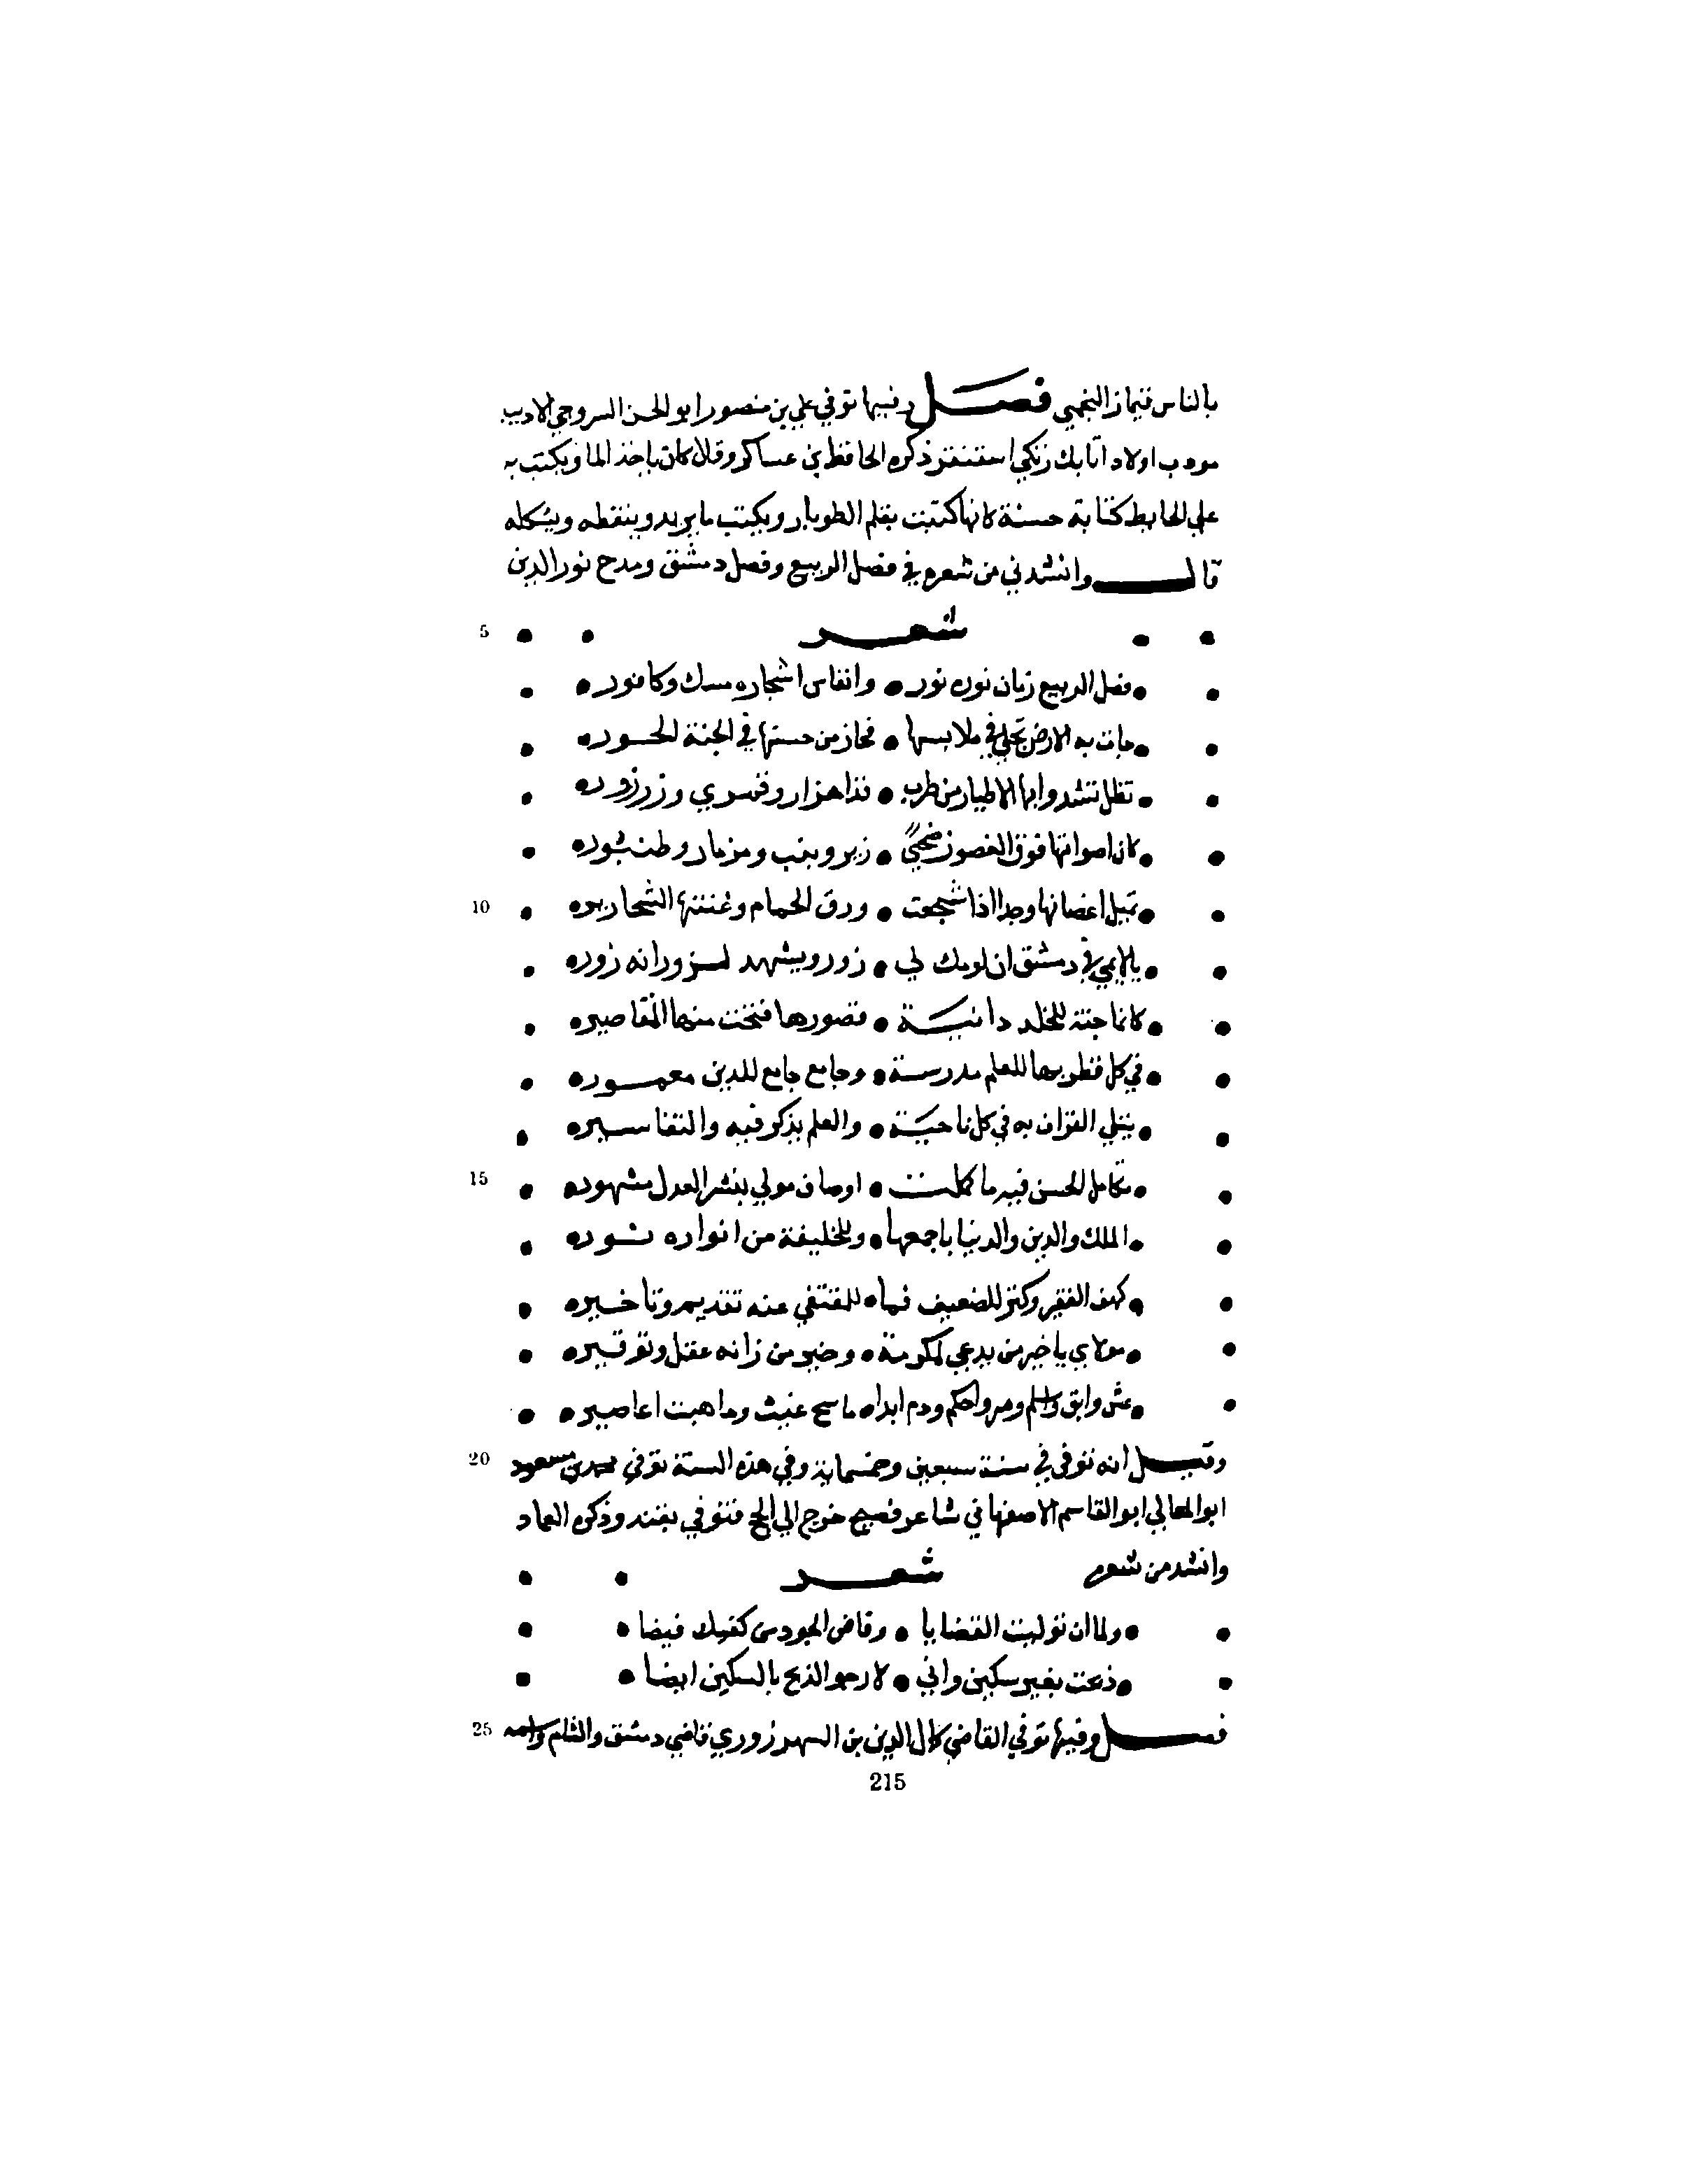 بالناس قيماز النجمي فصل وفيها توفي علي بن منصور ابو الحسن السروجي الاديب
مودب اولاد اتابك زنكي ذكره الحافظ بن عساكر وقال كان ياخذ الما ويكتب به
علي الحايط كتابة حسنة كانها كتبت بقلم الطومار ويكتب ما يريد وينقطه ويشكله
قال وانشدني من شعره في فضل الربيع وفصل دمشق ومدح نور الدين
شعر 5
فصل الربيع زمان نوره نور • وانفاس اشجاره مسك وكافور
جات به الارض تجلي في ملابسها • فحاز من حسنها في الجنة الحور
تظل تشدوا بها الاطيار من طرب • فذا هزار وقمري وزرزور
كان اصواتها فوق الغصون ضحيً • زير وبم ومزمار وطنبور
تميل اغصانها وجدا اذا شجعت • ورق الحمام وغنتها الشحارير 10
يا لايمي في دمشق ان لومك لي • زور ويشهد لي زورانه زور
كانما جنة للخلد دانية • قصورها فتحت منها المقاصير
في كل قطر بها للعلم مدرسة • وجامع جامع للدين معمور
يتلي القران به في كل ناحية • والعلم يذكر فيه والتفاسير
تكامل الحسن فيه ما كملت • اوصاف مولي بنشر العدل مشهور 15
الملك والدين والدنيا باجمعها • وللخليفة من انواره نور
كهف الفقير وكنز للضعيف فما • للمقتفي عنه تقديم وتاخير
مولاي يا خير من يدعي لمكرمة • وخير من زانه عقل وتوقير
عش وابق واسلم ومر واحكم ودم ابدا • ما سح غيث وما هبت اعاصير
وقيل انه توفي في سنة سبعين وخمسماية وفي هذه السنة توفي محمد بن مسعود 20
ابو المعالي ابو القاسم الاصفهاني شاعر فصيح خرج الي الحج فتوفي بفيد وذكره العماد
وانشد من شعره شعر
ولما ان توليت القضايا • وفاض الجود من كفيك فيضا
ذبحت بغير سكين واني • لارجو الذبح بالسكين ايضا
فصل وفيها توفي القاضي كمال الدين بن الشهرزوري قاضي دمشق والشام واسمه 25
215